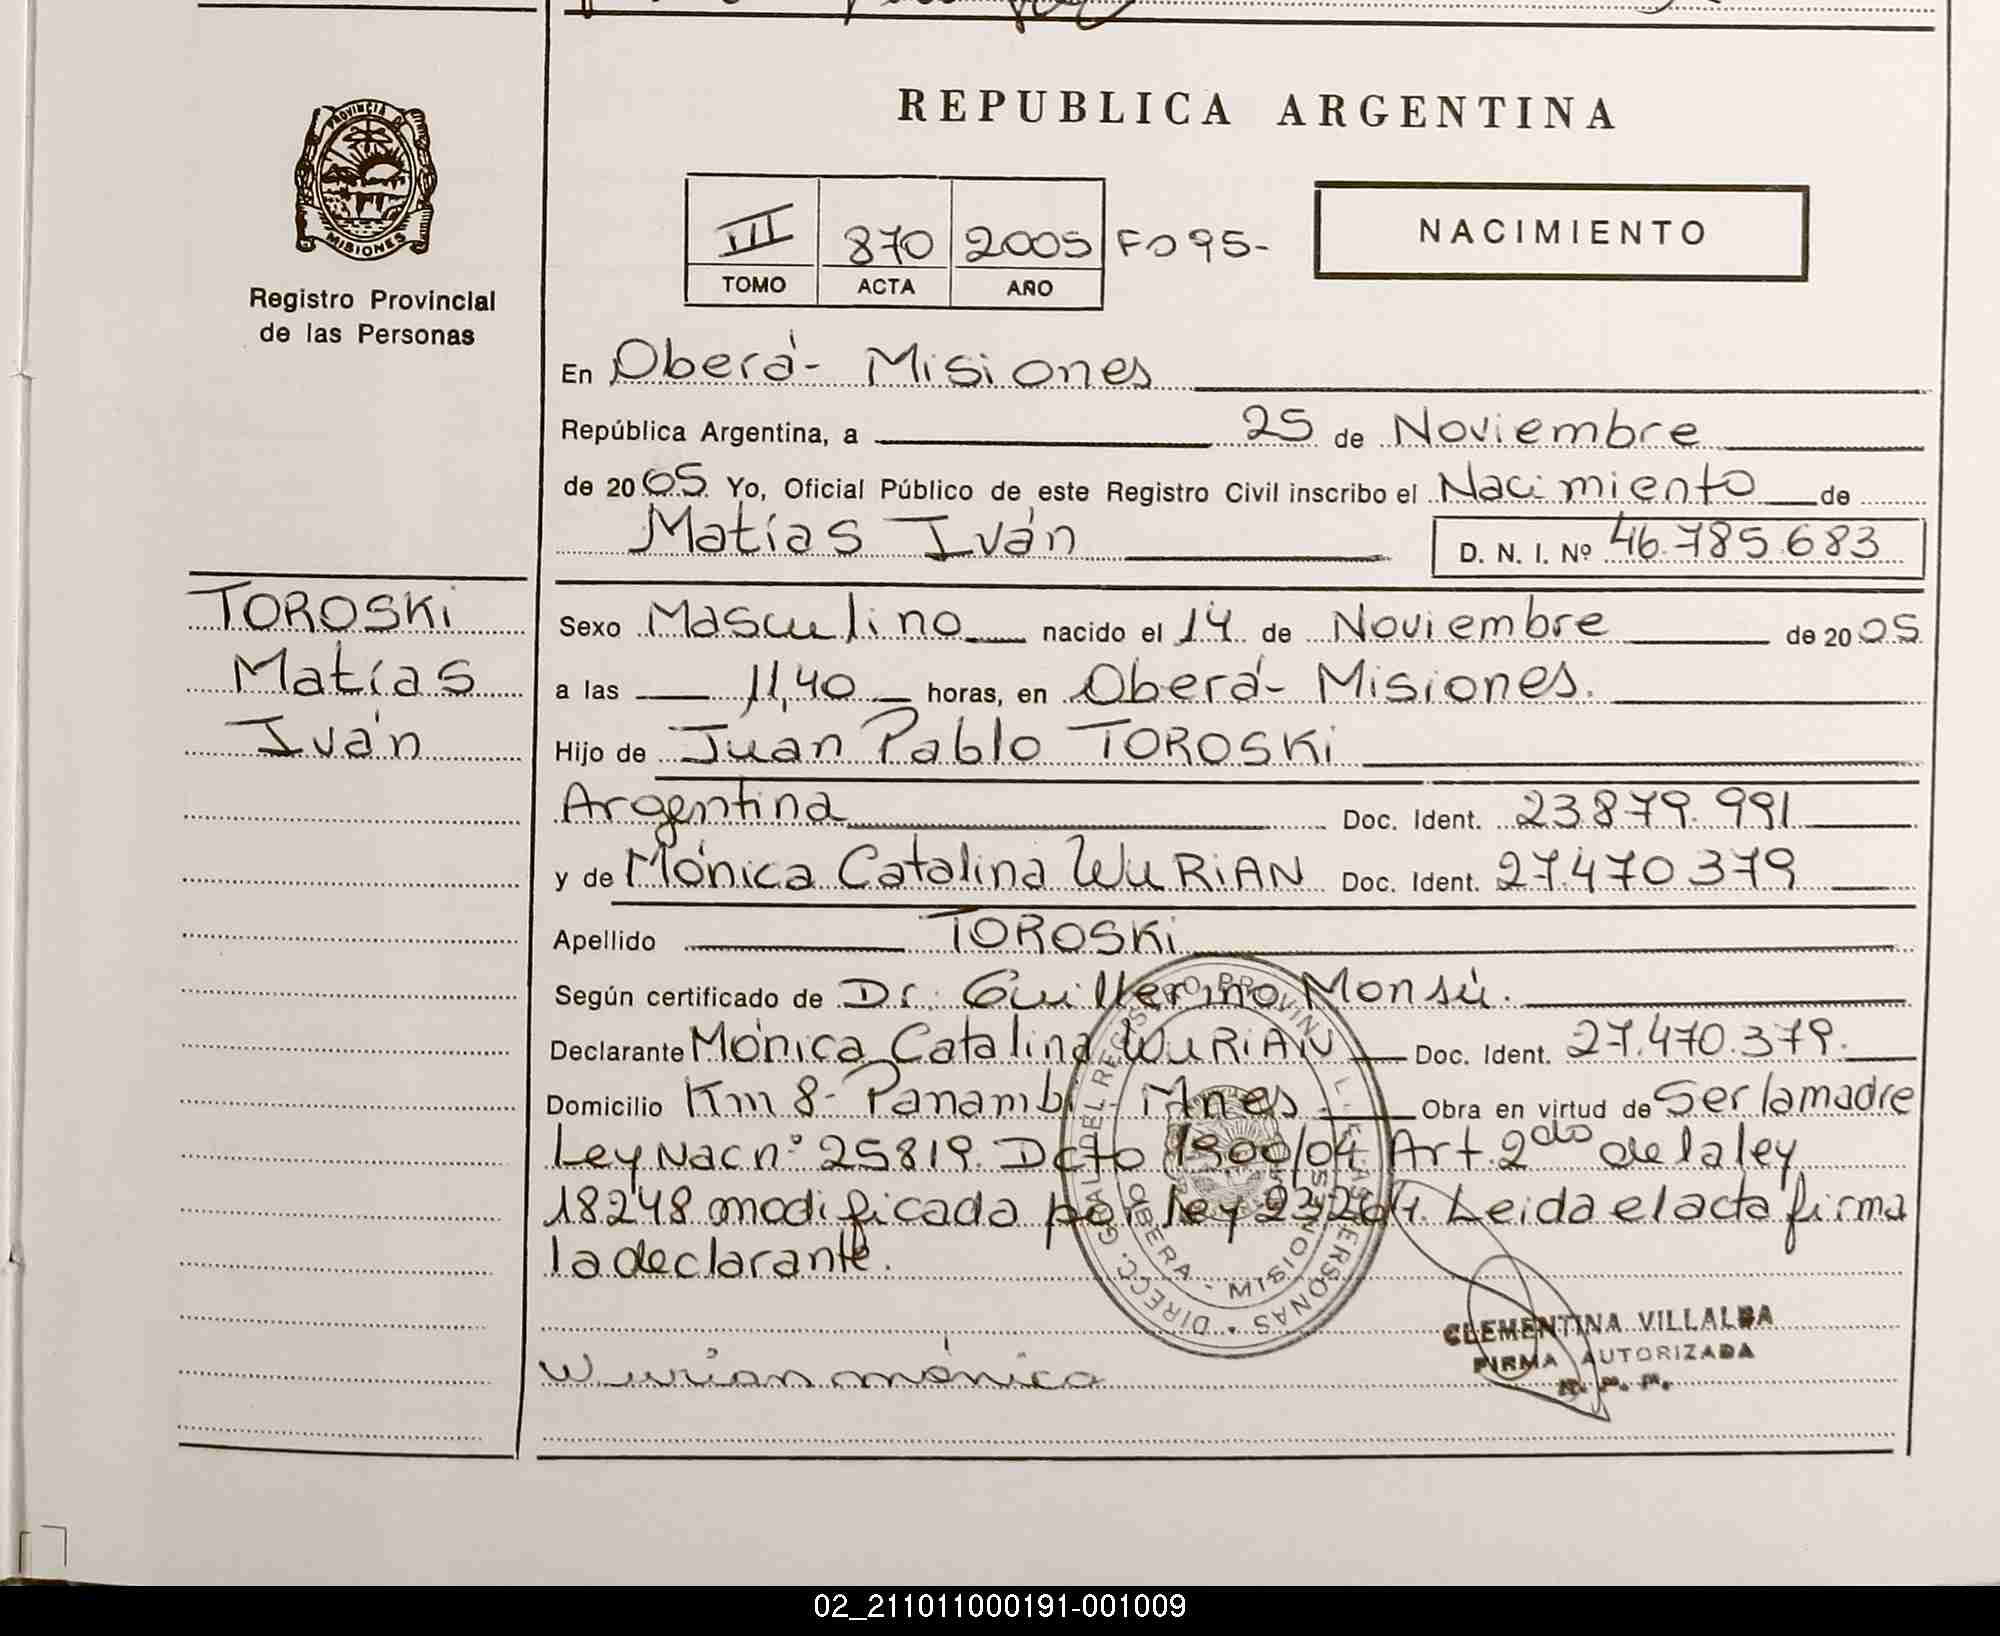 REPUBLICA ARGENTINA
PROVINCIA DE
MISIONES
Registro Provincial
de las Personas
III 870 2005 Fº 95-
TOMO ACTA AÑO
NACIMIENTO
En Oberá- Misiones
República Argentina, a 25 de Noviembre
de 2005 Yo, Oficial Público de este Registro Civil inscribo el Nacimiento de
Matías Iván D. N. I. Nº 46.785.683
TOROSKi
Matías
Iván
Sexo Masculino nacido el 14 de Noviembre de 2005
a las 11,40 horas, en Oberá- Misiones.
Hijo de Juan Pablo TOROSKi
Argentina Doc. Ident. 23.879.991
y de Mónica Catalina WURiAN Doc. Ident. 27.470.379
Apellido TOROSKi
Según certificado de Dr. Guillermo Monsú.
Declarante Mónica Catalina WURiAN Doc. Ident. 27.470.379.
Domicilio Km 8- Panambi Mnes Obra en virtud de Ser la madre
Ley Nac nº 25819. Dcto 1300/04 Art. 2do de la ley
18248 modificada por ley 23264. Leida el acta firma
la declarante.
DIRECC. GRAL DEL REGISTRO PROVINL. DE LAS PERSONAS
OBERA - MISIONES
Wurian mónica
CLEMENTINA VILLALBA
FIRMA AUTORIZADA
R. P. P.
02_211011000191-001009